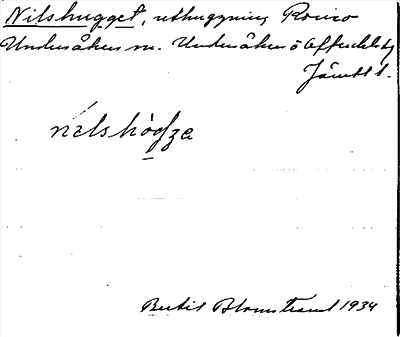 Nilshugget, uthuggning Rovico
Undersåkers sn. Undersåkers o Offerdals tg
Jämtl l.
nılshòg̣ge
Bertil Blomstrand 1934